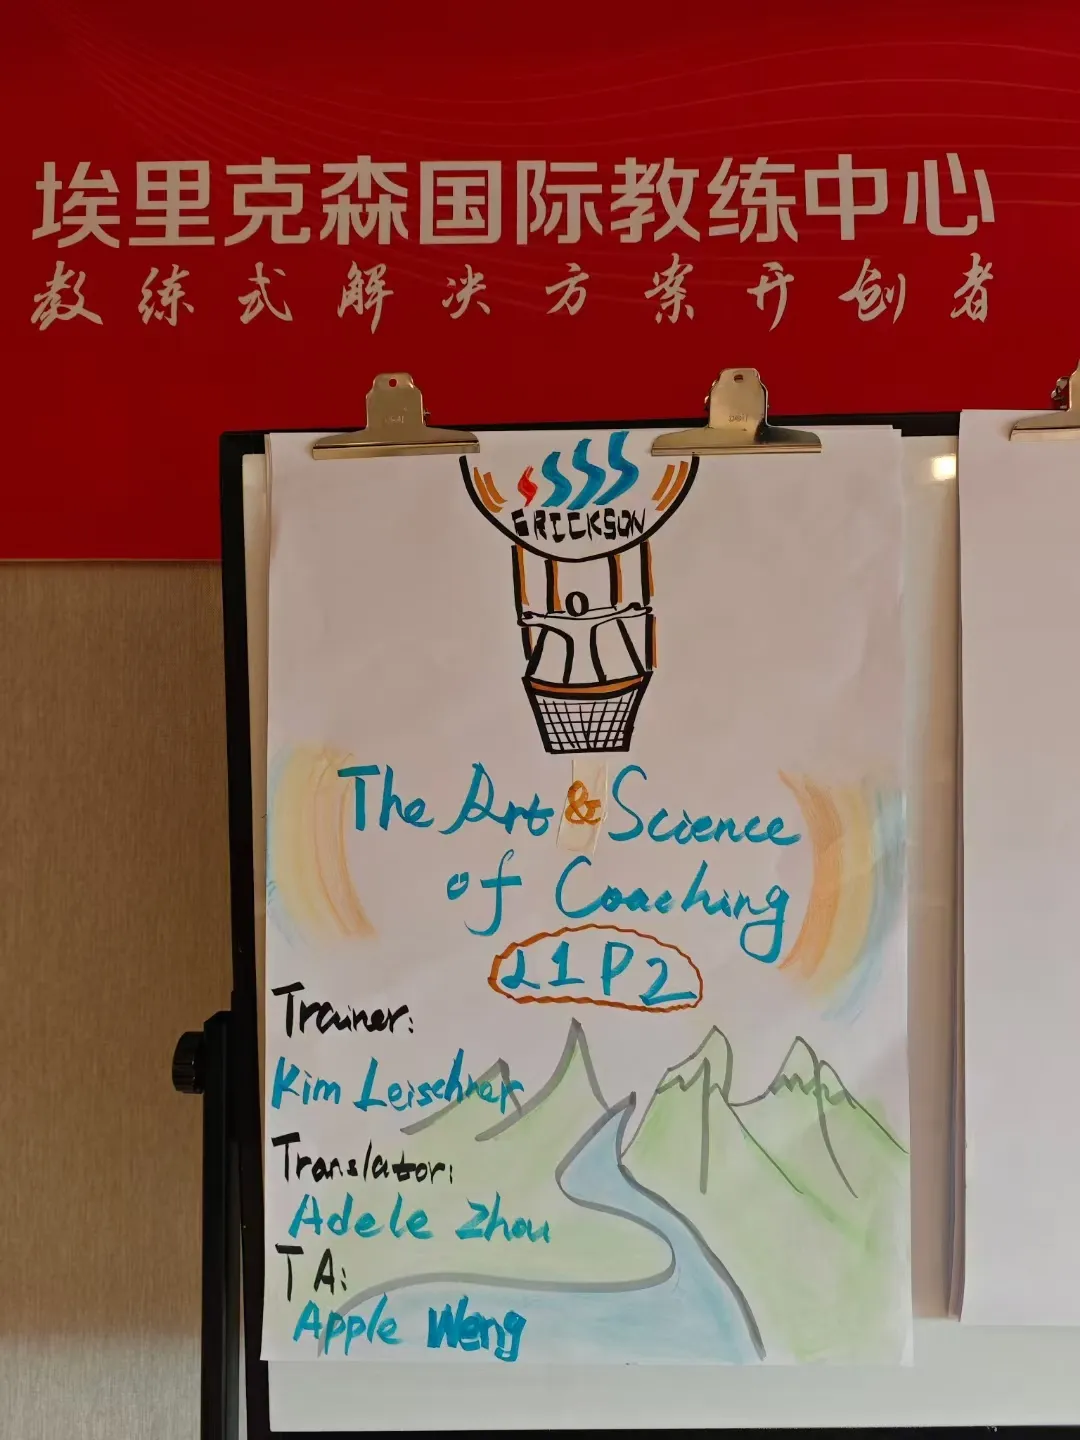 埃里克森国际教练中心
教练式解决方案开创者
ERICKSON
The Art & Science
of Coaching
L1P2
Trainer:
Kim Leischner
Translator:
Adele Zhou
TA:
Apple Weng